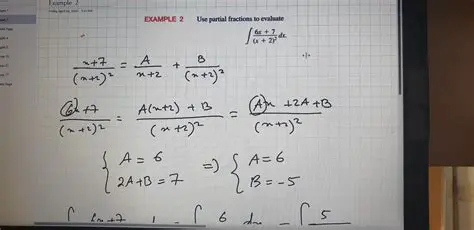 Example 2
EXAMPLE 2 Use partial fractions to evaluate
∫ (6x + 7)/(x + 2)² dx
(x+7)/(x+2)² = A/(x+2) + B/(x+2)²
(6x+7)/(x+2)² = (A(x+2) + B)/(x+2)² = (Ax + 2A + B)/(x+2)²
{ A = 6 ⇒ { A = 6
2A+B = 7 B = -5
∫ 6x+7 = ∫ 6 dx - ∫ 5